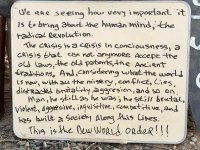 We are seeing how very important it
is to bring about the human mind, the
radical Revolution.
The crisis is a crisis in conciousness, a
crisis that can not anymore accept the
old laws, the old patterns, the Ancient
traditions. And, considering what the world
is now, with all the misery, conflict, lies,
distracted brutality, aggression, and so on,
Man, he still is as was, he still brutal,
violent, aggressive, inquisitive, competitive, and
has built a Society along this lines.
This is the New World order!!!